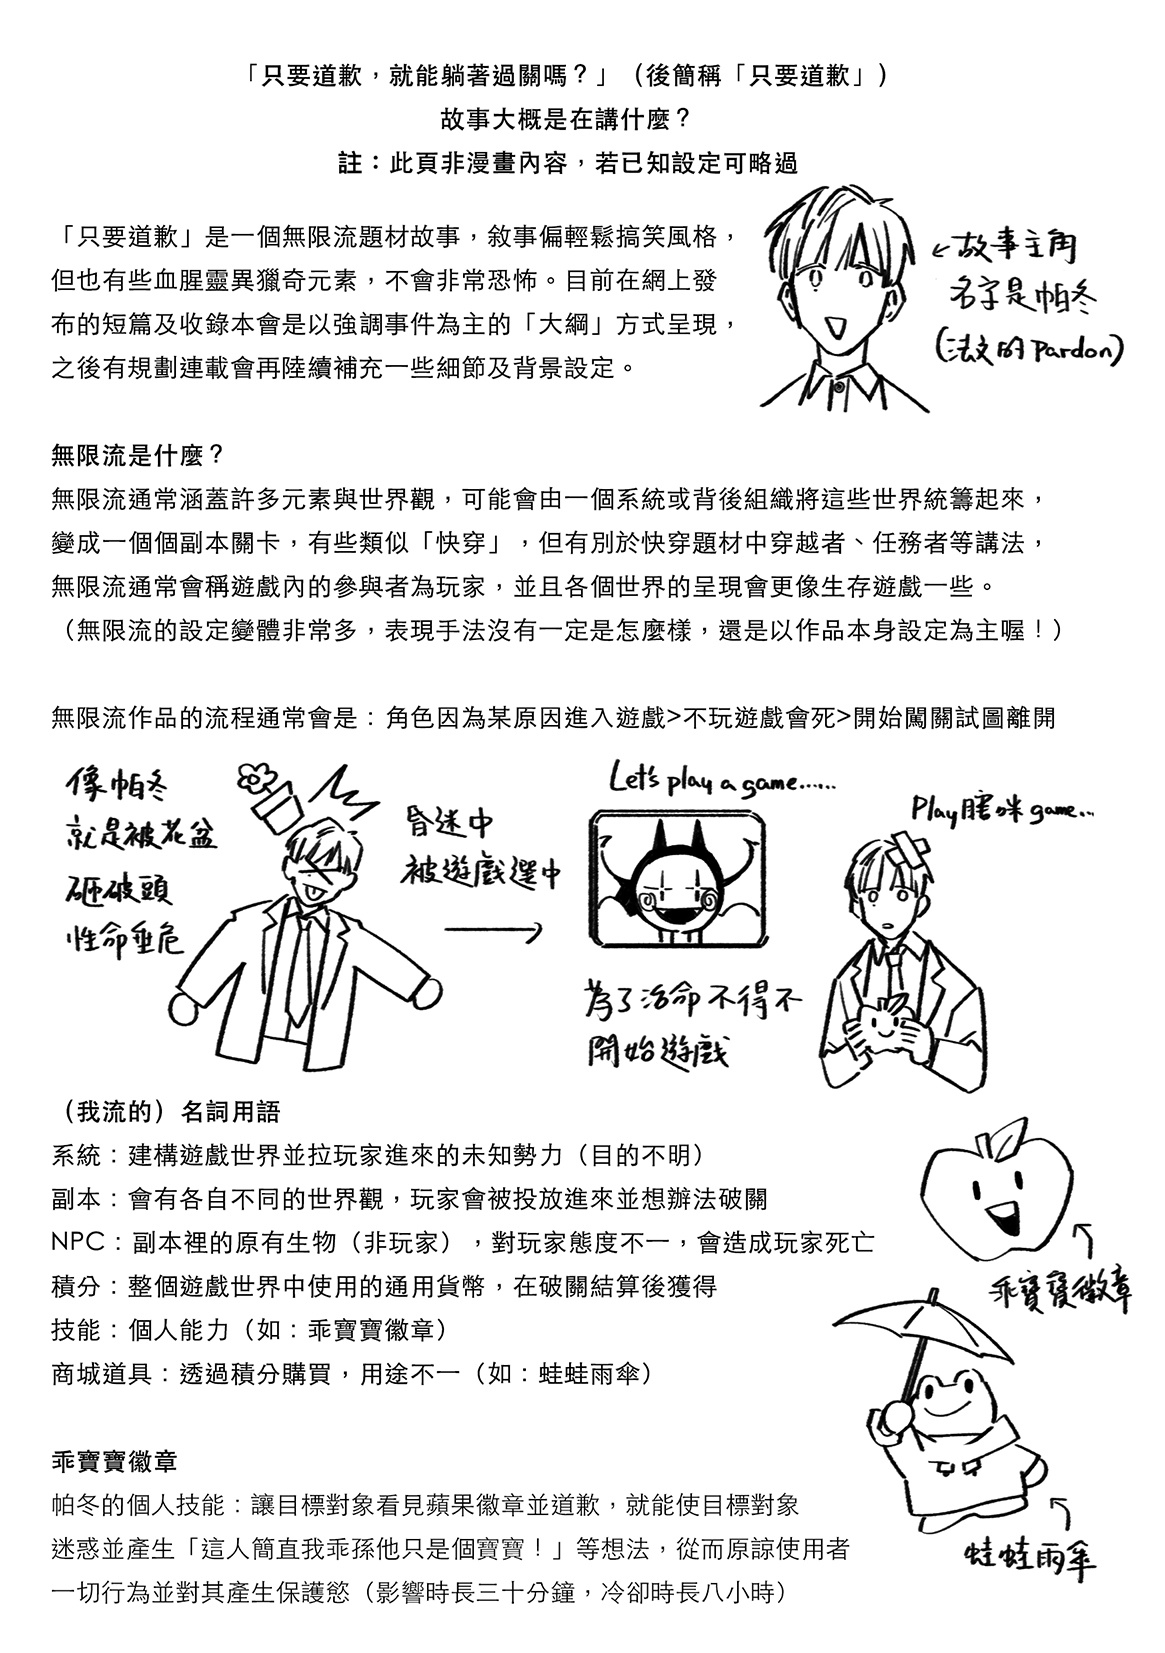 「只要道歉，就能躺著過關嗎？」（後簡稱「只要道歉」）
故事大概是在講什麼？
註：此頁非漫畫內容，若已知設定可略過
「只要道歉」是一個無限流題材故事，敘事偏輕鬆搞笑風格，
但也有些血腥靈異獵奇元素，不會非常恐怖。目前在網上發
布的短篇及收錄本會是以強調事件為主的「大綱」方式呈現，
之後有規劃連載會再陸續補充一些細節及背景設定。
←故事主角
名字是帕冬
(法文的Pardon)
無限流是什麼？
無限流通常涵蓋許多元素與世界觀，可能會由一個系統或背後組織將這些世界統籌起來，
變成一個個副本關卡，有些類似「快穿」，但有別於快穿題材中穿越者、任務者等講法，
無限流通常會稱遊戲內的參與者為玩家，並且各個世界的呈現會更像生存遊戲一些。
（無限流的設定變體非常多，表現手法沒有一定是怎麼樣，還是以作品本身設定為主喔！）
無限流作品的流程通常會是：角色因為某原因進入遊戲>不玩遊戲會死>開始闖關試圖離開
像帕冬
就是被花盆
砸破頭
性命垂危
昏迷中
被遊戲選中
Let's play a game......
為了活命不得不
開始遊戲
Play瞎咪game...
（我流的）名詞用語
系統：建構遊戲世界並拉玩家進來的未知勢力（目的不明）
副本：會有各自不同的世界觀，玩家會被投放進來並想辦法破關
NPC：副本裡的原有生物（非玩家），對玩家態度不一，會造成玩家死亡
積分：整個遊戲世界中使用的通用貨幣，在破關結算後獲得
技能：個人能力（如：乖寶寶徽章）
商城道具：透過積分購買，用途不一（如：蛙蛙雨傘）
乖寶寶徽章
蛙蛙雨傘
乖寶寶徽章
帕冬的個人技能：讓目標對象看見蘋果徽章並道歉，就能使目標對象
迷惑並產生「這人簡直我乖孫他只是個寶寶！」等想法，從而原諒使用者
一切行為並對其產生保護慾（影響時長三十分鐘，冷卻時長八小時）